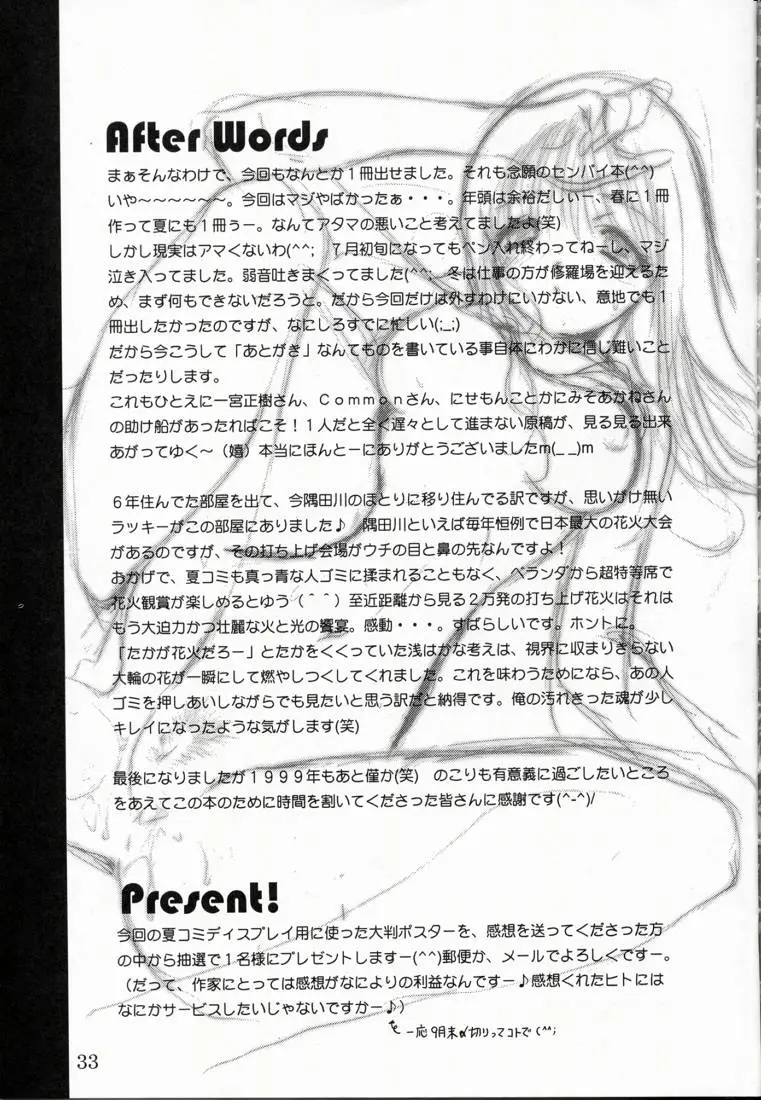 After Words
まぁそんなわけで、今回もなんとか１冊出せました。それも念願のセンパイ本(^^)
いや〜〜〜〜〜〜。今回はマジやばかったぁ・・・。年頭は余裕だしぃー、春に１冊
作って夏にも１冊ぅー。なんてアタマの悪いこと考えてましたよ(笑)
しかし現実はアマくないわ(^^;　７月初旬になってもペン入れ終わってねーし、マジ
泣き入ってました。弱音吐きまくってました(^^;　冬は仕事の方が修羅場を迎えるた
め、まず何もできないだろうと。だから今回だけは外すわけにいかない、意地でも１
冊出したかったのですが、なにしろすでに忙しい(;_;)
だから今こうして「あとがき」なんてものを書いている事自体にわかに信じ難いこと
だったりします。
これもひとえに一宮正樹さん、Ｃｏｍｍｏｎさん、にせもんことかにみそあかねさん
の助け船があったればこそ！１人だと全く遅々として進まない原稿が、見る見る出来
あがってゆく〜（嬉）本当にほんとーにありがとうございましたm(_ _)m
６年住んでた部屋を出て、今隅田川のほとりに移り住んでる訳ですが、思いがけ無い
ラッキーがこの部屋にありました♪　隅田川といえば毎年恒例で日本最大の花火大会
があるのですが、その打ち上げ会場がウチの目と鼻の先なんですよ！
おかげで、夏コミも真っ青な人ゴミに揉まれることもなく、ベランダから超特等席で
花火観賞が楽しめるとゆう（＾＾）至近距離から見る２万発の打ち上げ花火はそれは
もう大迫力かつ壮麗な火と光の饗宴。感動・・・。すばらしいです。ホントに。
「たかが花火だろー」とたかをくくっていた浅はかな考えは、視界に収まりきらない
大輪の花が一瞬にして燃やしつくしてくれました。これを味わうためになら、あの人
ゴミを押しあいしながらでも見たいと思う訳だと納得です。俺の汚れきった魂が少し
キレイになったような気がします(笑)
最後になりましたが１９９９年もあと僅か(笑)　のこりも有意義に過ごしたいところ
をあえてこの本のために時間を割いてくださった皆さんに感謝です(^-^)/
Present!
今回の夏コミディスプレイ用に使った大判ポスターを、感想を送ってくださった方
の中から抽選で１名様にプレゼントしますー(^^)郵便か、メールでよろしくですー。
（だって、作家にとっては感想がなによりの利益なんですー♪感想くれたヒトには
なにかサービスしたいじゃないですかー♪）
一応9月末〆切りってコトで(^^;
33